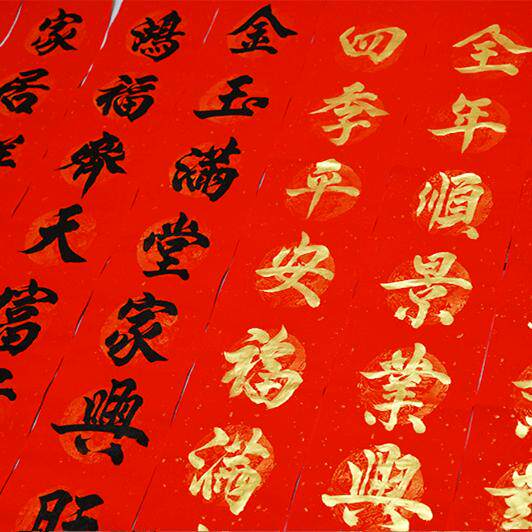 全年順景業興
四季平安福滿
金玉滿堂家興旺
鴻福齊天富
家居